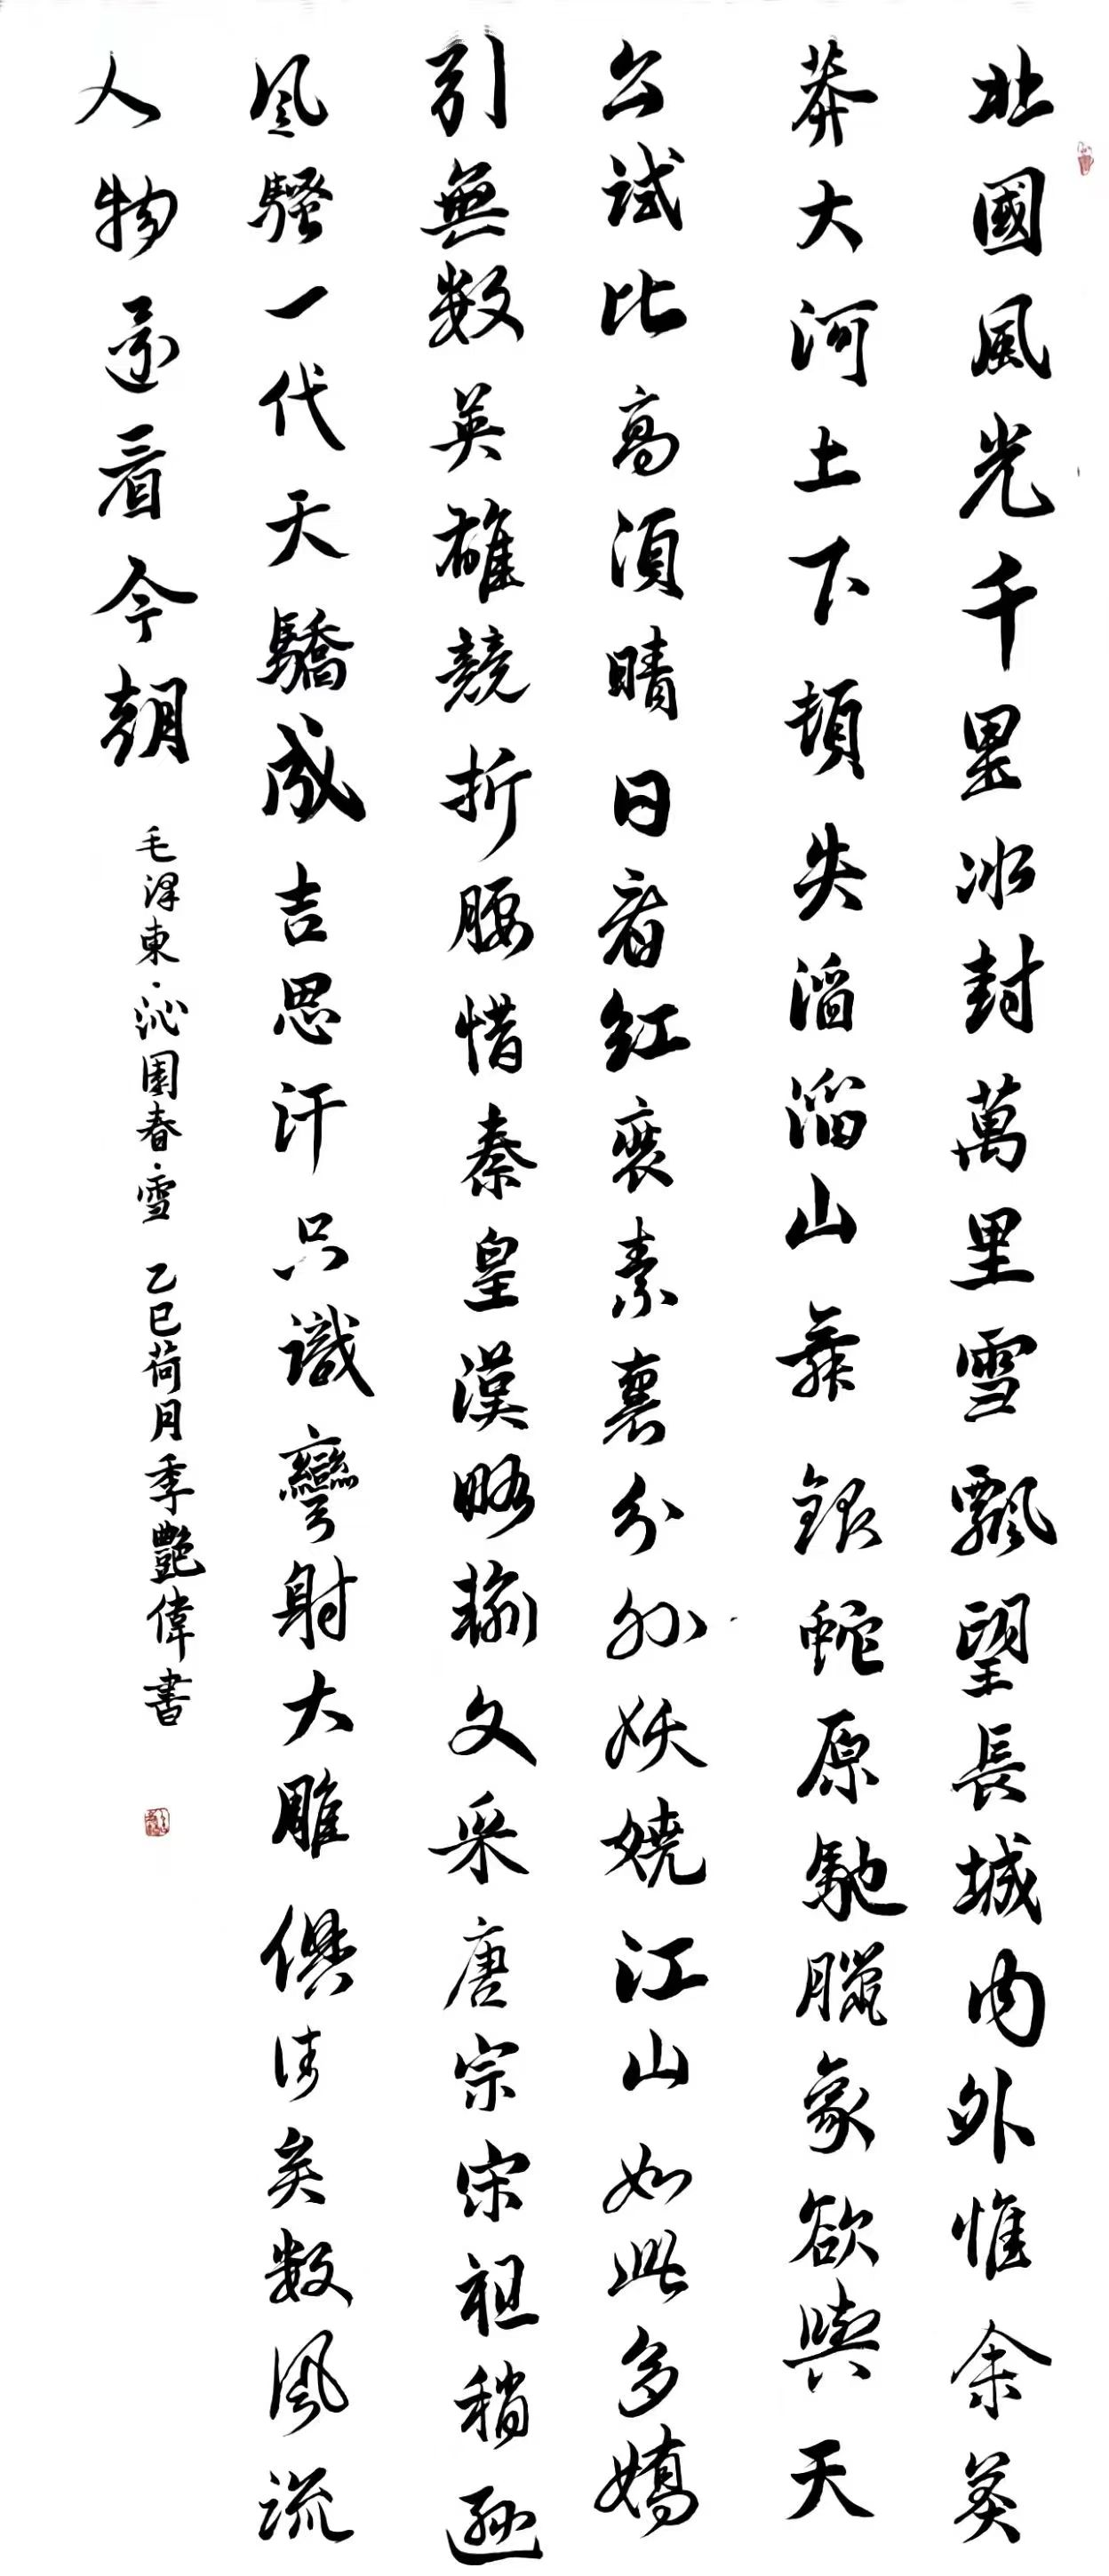 北國風光千里冰封萬里雪飄望長城内外惟余莽
莽大河土下頓失滔滔山舞銀蛇原馳臘象欲與天
公試比高須晴日看紅裝素裹分外妖嬈江山如此多嬌
引無数英雄競折腰惜秦皇漢略輸文采唐宗宋祖稍遜
風騷一代天驕成吉思汗只識彎射大雕俱往矣数風流
人物還看今朝
毛澤東·沁園春·雪 乙巳荷月季艷偉書